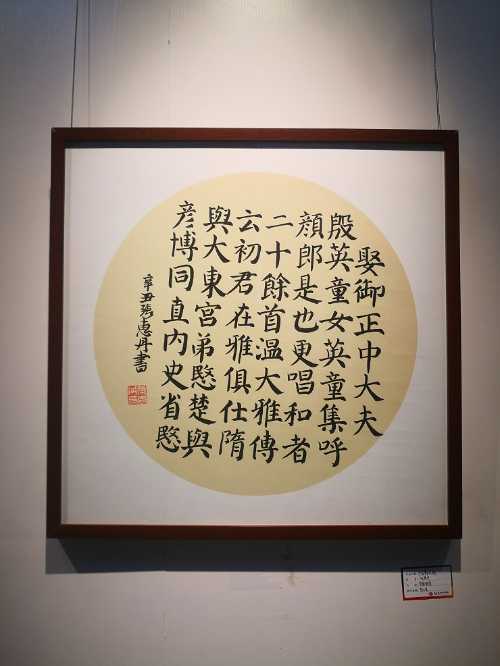 娶御正中大夫
殷英童女英童集呼
顔郎是也更唱和者
二十餘首温大雅傳
云初君在雅俱仕隋
與大東宮弟愍楚與
彦博同直内史省愍
辛丑張惠丹書